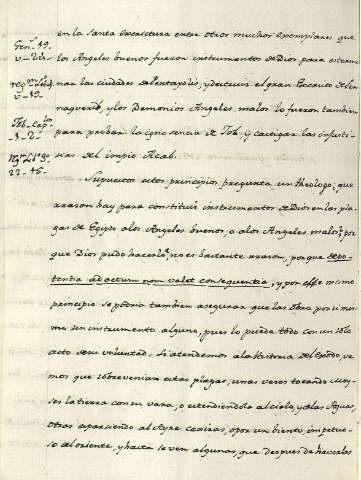 en la Santa escritura entre otros muchos exemplares que
Gen. 19.
los Angeles buenos fueron instrumentos de Dios para extermi
nar las ciudades de Pentapolis, y destruir el gran Exercito de Sen
naquerib, y los Demonios Angeles malos lo fueron tambien
para probar la conciencia de Job, y castigar las injusti
1. 2.
cias del impio Acab.
22. 15.
Supuestos estos principios pregunta un theologo, que
rrason hay para constituir instrumentos de Dios en las pla
gas de Egipto a los Angeles buenos, o a los Angeles malos? por
que Dios pudo hacerlo, no es bastante rrason, porque de po
tentia ad actum non valet consequentia, y por esse mismo
principio se podria tambien asegurar que las obro por si mis
mo sin instrumento alguno, pues lo puede todo con un solo
acto de su voluntad. Si atendemos a la Historia del Exodo, ve
mos que sobrevenian estas plagas, unas veces tocando Moy
ses la tierra con su vara, o extendiendola al cielo, y a las Aguas,
otras esparciendo al Ayre cenizas, o por un biento impetuo
so del oriente, y hasta se ven algunas, que despues de haverlas